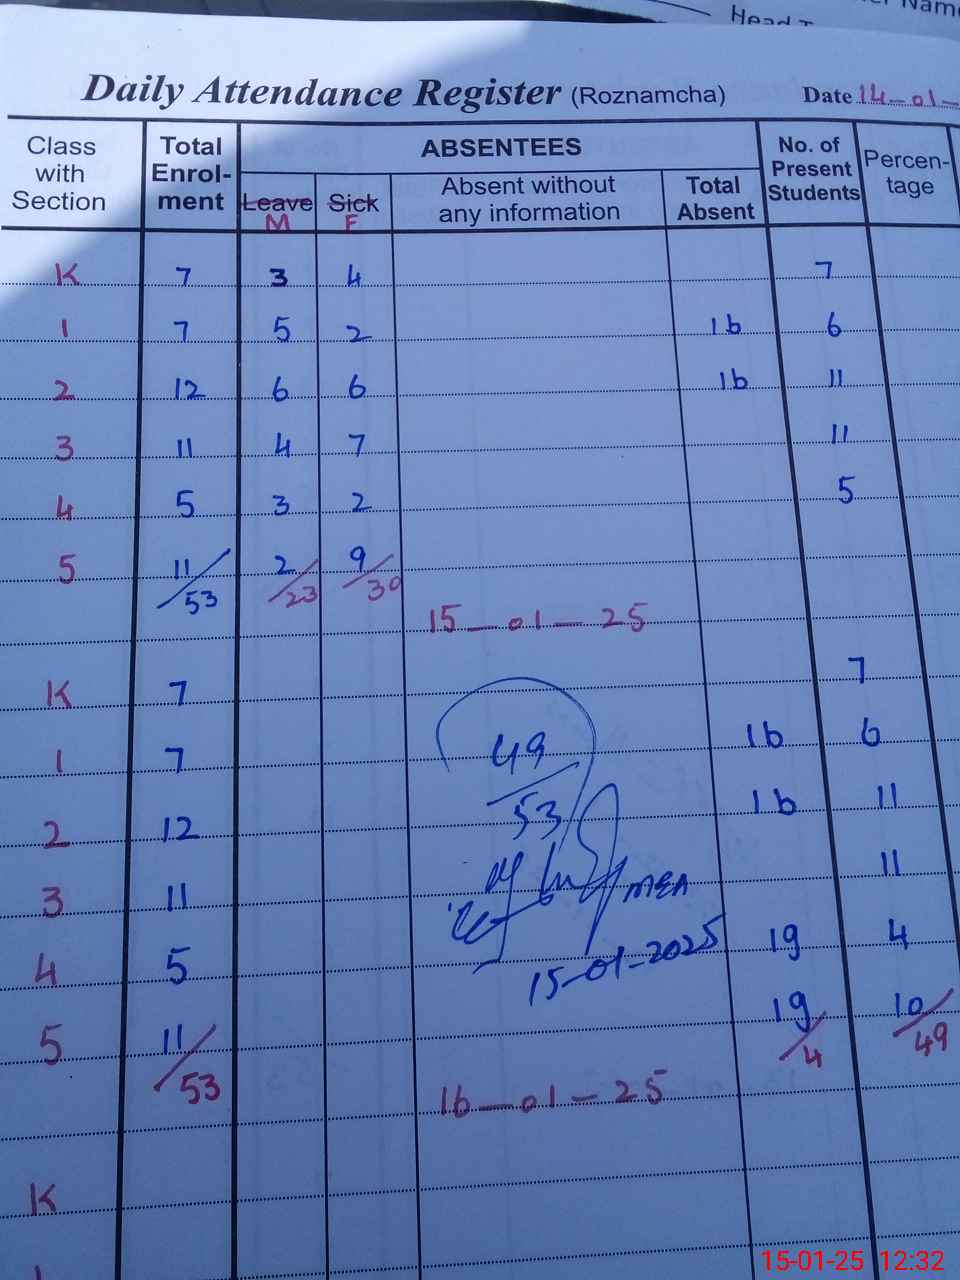 Head T
Nam
Daily Attendance Register (Roznamcha) Date 14-01-
Class with Section Total Enrol-ment ABSENTEES No. of Present Students Percen-tage
Leave Sick Absent without any information Total Absent
M F
K 7 3 4 7
1 7 5 2 1b 6
2 12 6 6 1b 11
3 11 4 7 11
4 5 3 2 5
5 11/53 2/23 9/30
15-01-25
K 7 7
1 7 49 1b 6
2 12 53 1b 11
3 11 MEA 11
4 5 15-01-2025 1g 4
5 11/53 1g/4 10/49
16-01-25
K
1
15-01-25 12:32